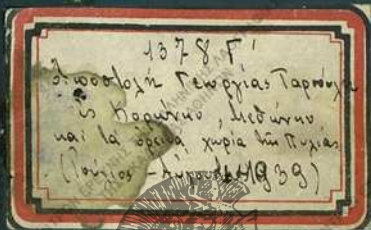 1378 Γ'
Ἀποστολὴ Γεωργίας Ταρσούλη
εἰς Κορώνην, Μεθώνην
καὶ τὰ ὀρεινὰ χωρία τῆς Πυλίας
(Ἰούνιος - Αὔγουστος 1939)